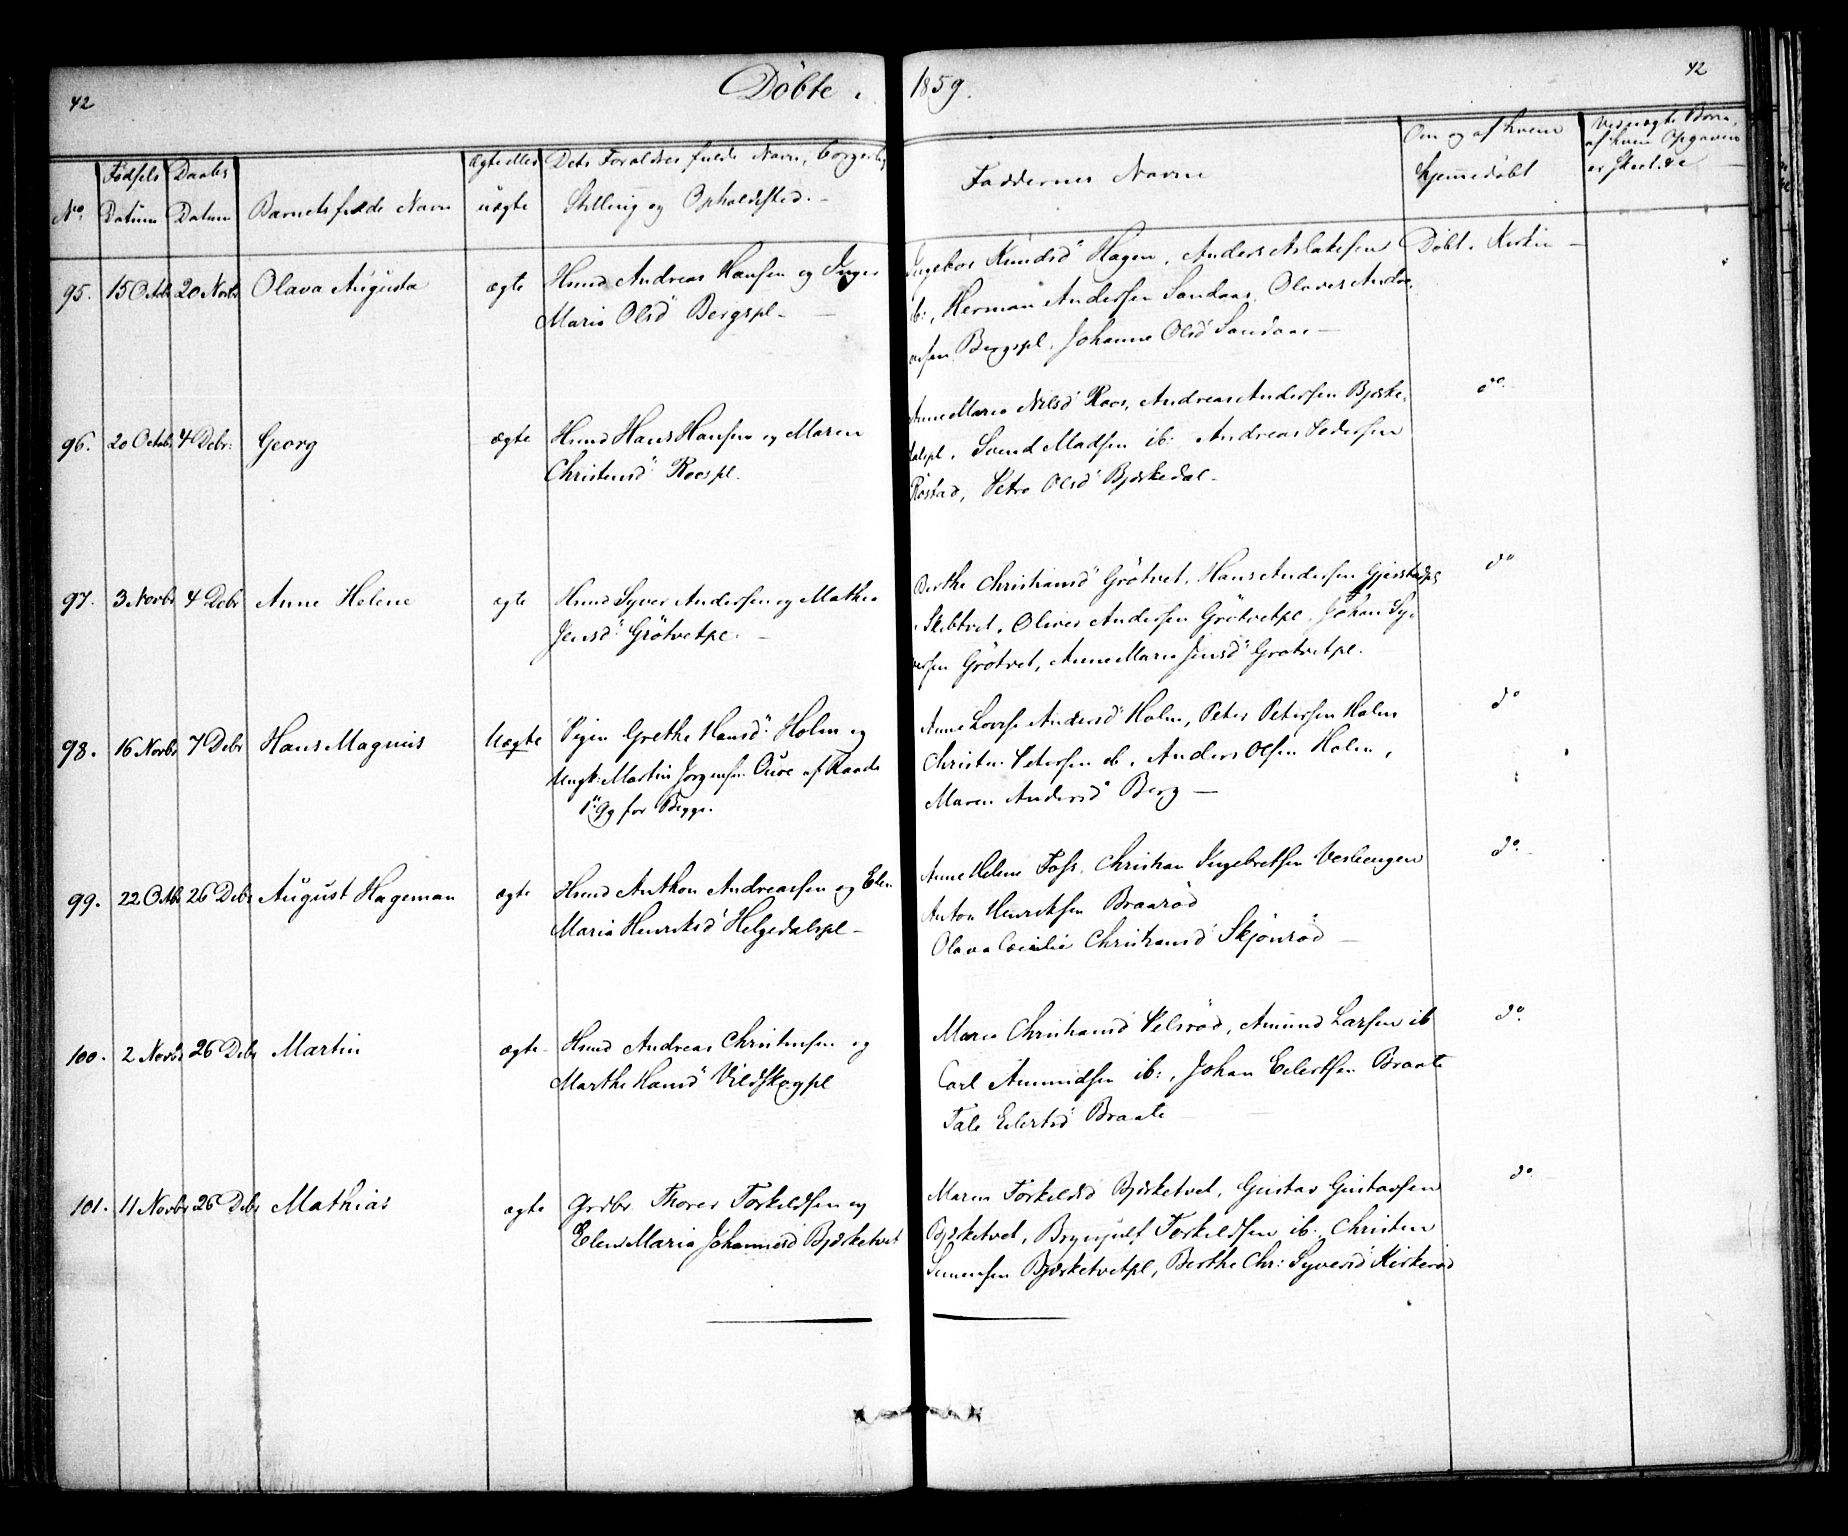 42
Döbte. 1859.
42
No.
Fødsels Datum
Daabs Datum
Barnets fulde Navn
Ægte eller uægte
Dets Forældres fulde Navn, borgerlig
Stilling og Opholdssted. -
Faddernes Navne
Om og af hvem
hjemmedøbt
Ved uægte Børn,
af hvem Opgaven
er skeet. &c
95. 15 Octbr 20 Novbr Olava Augusta ægte Hsmd Andreas Hansen og Inger
Marie Olsd. Bergspl. -
Ingebor Knudsd Hagen, Anders Aslaksen
ib:, Herman Andersen Sandaas, Olaves Andre-
asen Bergspl, Johanne Olsd Sandaas -
Döbt i Kirken -
96. 20 Octobr 4 Debr: Georg ægte Hsmd Hans Hansen og Maren
Christensd. Roespl.
Anne Marie Nilsd Roos, Andreas Andersen Bjørke-
dalspl, Svend Madsen ib: Andreas Pedersen
Rostad, Petra Olsd Bjørkedal -
do
97. 3 Novbr 4 Debr Anne Helene ægte Hsmd Syver Andersen og Mathea
Jensd. Grötvetpl. -
Berthe Christiansd Grötvet, Hans Andersen Gjerstadpl
Skibtvet, Oliver Andersen Grötvetpl, Johan Sy-
versen Grötvet, Anne Marie Jensd Grotvetpl.
do
98. 16 Novbr 7 Debr Hans Magnus Uægte Pigen Grethe Hansd. Holm og
Ungk: Martin Jørgensen Oure af Raade
1ste Gg for Begge.
Anne Lovise Andersd Holm, Peter Petersen Holm
Christen Petersen ib, Anders Olsen Holm,
Maren Andersd Berg -
do
99. 22 Octbr 26 Debr August Hageman ægte Hsmd Anthon Andreassen og Elen
Maria Henriksd Helgedalspl -
Anne Helene Foss, Christian Ingebretsen Vesleengen
Anton Henriksen Braarød
Olava Cecilie Christiansd Skjønrød -
do.
100. 2 Novbr 26 Debr Martin ægte - Hsmd Andreas Christensen og
Marthe Hansd Vildskogpl
Maren Christiansd Velsrød, Amund Larsen ib
Carl Amundsen ib:, Johan Eilertsen Braate
Tale Eilertsd Braate -
do.
101. 11 Novbr 26 Debr Mathias ægte Grdbr. Thorer Torkeldsen og
Elen Maria Johannesd Bjørketvet
Maren Torkeldsd Bjørketvet, Gustav Gustavsen
Bjørketvet, Brynjulf Torkeldsen ib:, Christen
Simensen Bjørketvetpl, Berthe Chr: Syversd Kirkerød
do.